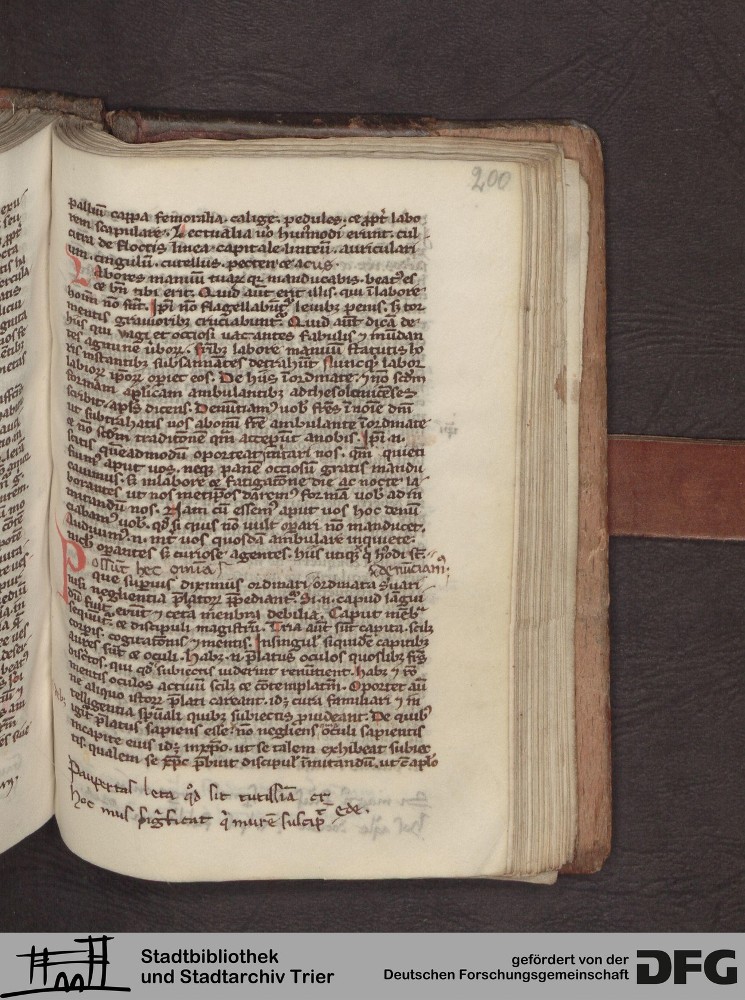 200
palliū cappa femoralia. calige. pedules. ce ꝓpt̄ labo
rem scapulare. Lectualia ūo huiꝰmodi erunt. cul
citra de floccis linea capitale linteū. auriculari
um. cingulū. cutellus. pecten ce acus.
Labores manuū tuaꝝ qꝛ manducabis. beatꝰ es
ce bn̄ tibi erit. Quid aut̄ erit illis. qui ī labore
hoīm nō sūt. Ipi nō flagellabūtꝰ leuibꝫ penis. sꝫ tor
mentis grauioribꝫ cruciabuntꝰ. Quid aut̄ dicā de
hiis qui uagi et occiosi uacantes fabulis ⁊ mūdan
labore manuū
labioꝝ ipoꝝ opiet eos. De hiis īordinate ⁊ nō scdm
formam aplicam ambulantibꝫ
scribit apls dicens. Denūtiamꝰ uob̄ frēs ī noīe dnī
ut subtrahatis uos ab omī frē ambulante īordinate
ce nō scdm traditionē qm̄ acceperūt a nobis. Ipi .n.
scitis quēadmodū oporteat imitari nos. qm̄ quieti
fuimꝰ aput uos. neqꝫ panē occiosū gratis mandu
cauimus. sꝫ in labore ce fatigatiōne die ac nocte la
borantes. ut nos metipos daremꝰ formā uob̄ ad ī
mitandū nos. Nam cū essemꝰ aput uos hoc denū
ciabamꝰ uob̄. qd̄ si quis nō uult oꝑari nō manducet.
Audiuimꝰ .n. int̄ uos quosdā ambulare inquiete.
nichil oꝑantes sꝫ curiose agentes. hiis utiqꝫ q̄ hꝰmodi st̄
denūciamꝰ.
Possūt hec omīa
que suꝑius diximus ordinari ordinata ꝯseruari
nisi negligentia p̄latoꝝ īpediantꝰ. Si .n. capud lāgui
dū fūit erūt ⁊ cet̄a menbra debilia. Caput mēb̄
sequūt̄. ce discipuli magistrū. Tria aut̄ sūt capita. scilꝫ
corꝑis. cogitatōnis ⁊ mentis. In singul̄ siquidē capitibꝫ
aures sūt ce oculi. Habꝫ .n. p̄latus oculos quoslibꝫ fr̄s
discretos. qui qd̄ subiectis uiderint renūtient. habꝫ ⁊
mentis oculos actiuū scilꝫ ce cōtemplatiuū. Oportet aū
ne aliquo istoꝝ p̄lati careant. idꝫ cura familiari ⁊ in
telligentia spūali quibꝫ subiectis ꝓuideant. De quibꝰ
igit̄ p̄latus sapiens esse nō negliens. oculi sapientis
in capite eius idꝫ in xp̄o. ut se talem exhibeat subiec
tis. qualem se xp̄c p̄buit discipul̄ īmitandū. ut
Paupertas leta qd̄ sit tutissīa
Hoc mus significat q̄ murē suscip
Stadtbibliothek
und Stadtarchiv Trier
gefördert von der
Deutschen Forschungsgemeinschaft
DFG